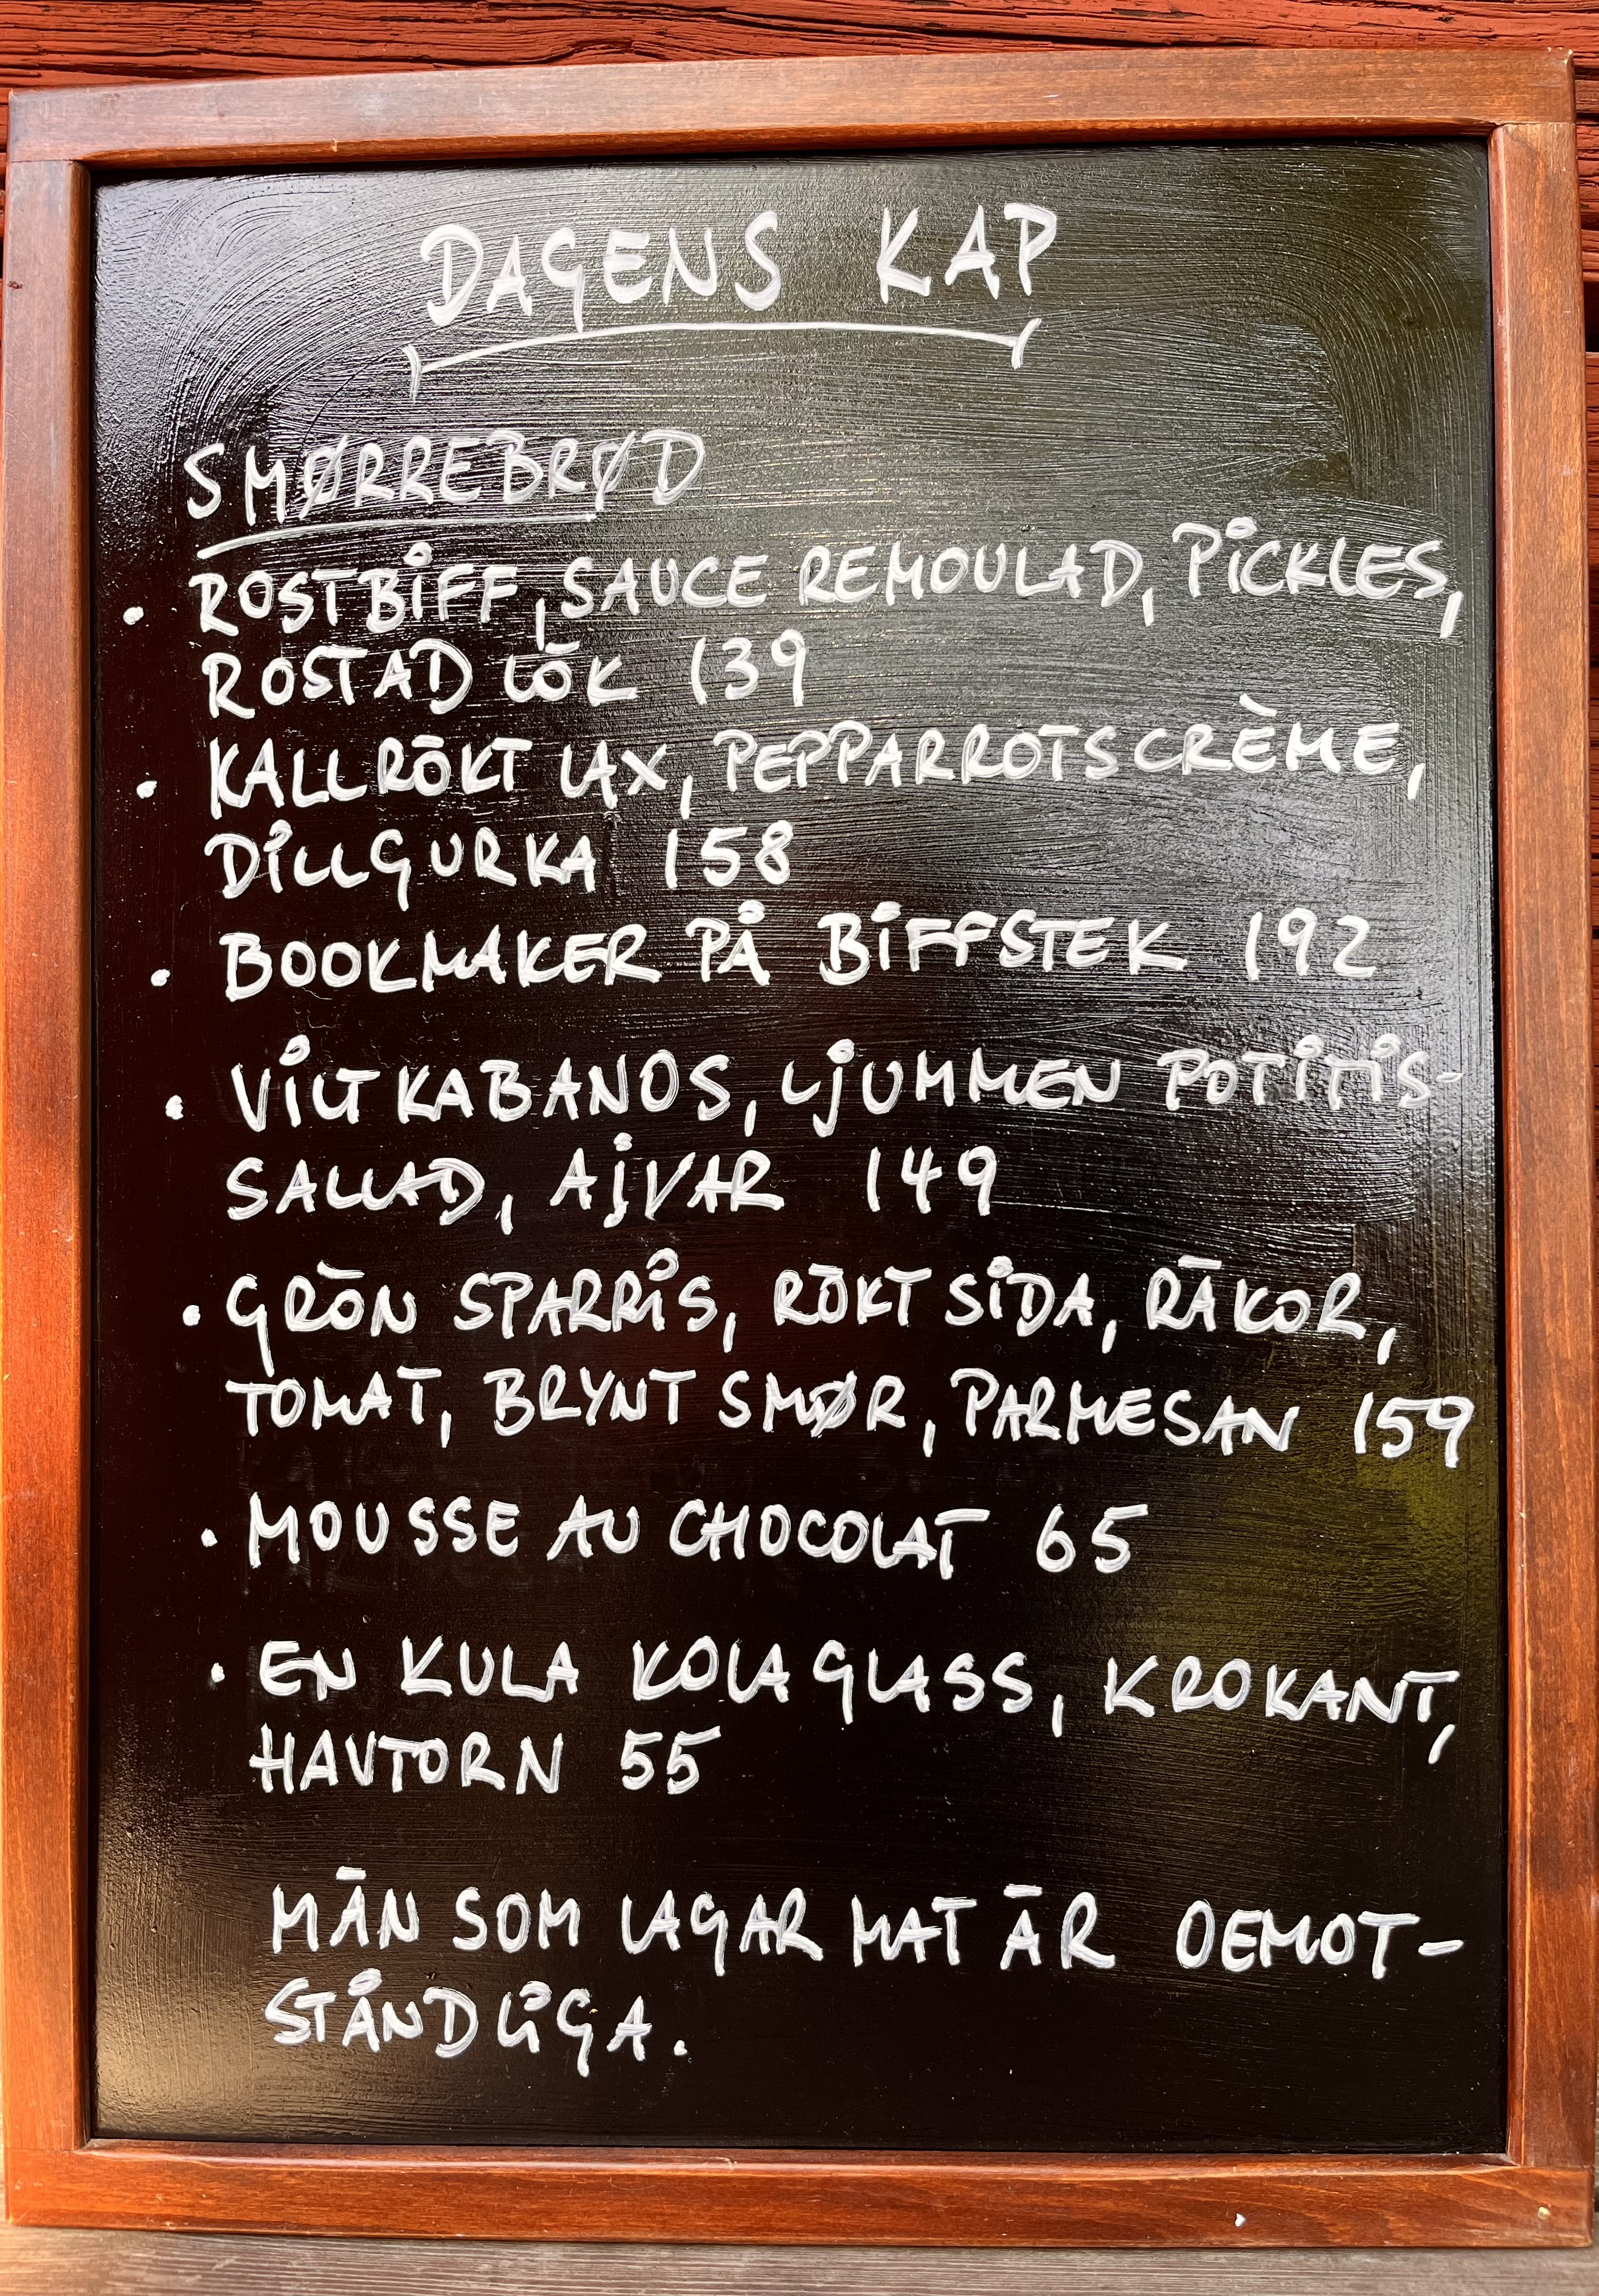 DAGENS KAP
SMØRREBRØD
• ROSTBIFF, SAUCE REMOULAD, PICKLES,
ROSTAD LÖK 139
• KALLRÖKT LAX, PEPPARROTSCRÈME,
DILLGURKA 158
• BOOKMAKER PÅ BIFFSTEK 192
• VILTKABANOS, LJUMMEN POTITIS-
SALLAD, AJVAR 149
• GRÖN SPARRIS, RÖKT SIDA, RÄKOR,
TOMAT, BRYNT SMØR, PARMESAN 159
• MOUSSE AU CHOCOLAT 65
• EN KULA KOLAGLASS, KROKANT,
HAVTORN 55
MÄN SOM LAGAR MAT ÄR OEMOT-
STÅNDLIGA.